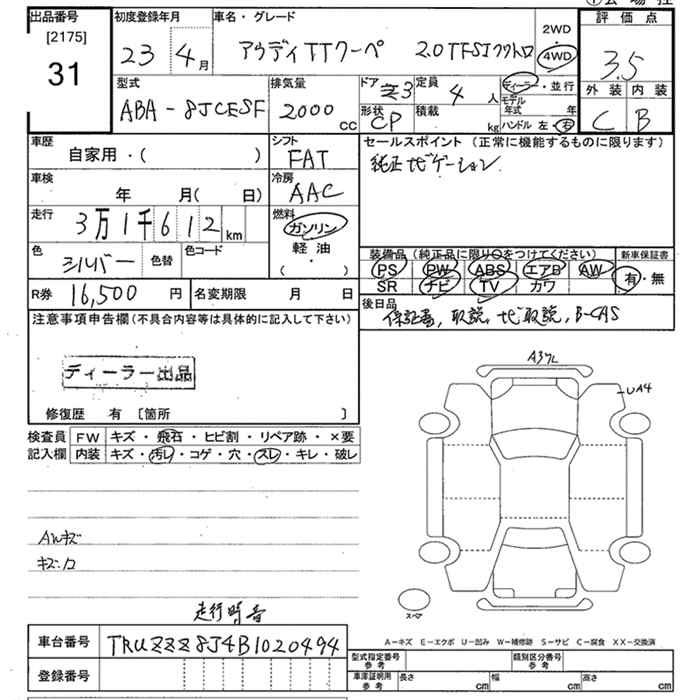 出品番号 [2175] 31
初度登録年月 23 4月
車名・グレード アウディTTクーペ 2.0TFSIクワトロ
2WD・4WD
評価点 3.5
外装 内装
C B
型式 ABA-8JCESF
排気量 2000 CC
ドア 3
形状 CP
定員 4 人
積載 kg
ディーラー・並行
モデル年式 年
ハンドル 左・右
車歴 自家用・( )
シフト FAT
セールスポイント (正常に機能するものに限ります)
純正ナビゲーション
車検 年 月( 日)
冷房 AAC
走行 3万1千612km
燃料 ガソリン 軽油 ( ・ )
色 シルバー 色替 色コード
装備品 (純正品に限り○をつけてください) 新車保証書
PS PW ABS エアB AW 有・無
SR ナビ TV カワ
R券 16,500円 名変期限 月 日
後日品
保証書, 取説, ナビ取説, B-CAS
注意事項申告欄(不具合内容等は具体的に記入して下さい)
ディーラー出品
修復歴 有 〔箇所 〕
検査員記入欄
FW キズ・飛石・ヒビ割・リペア跡・×要
内装 キズ・汚レ・コゲ・穴・スレ・キレ・破レ
AWキズ
キズ・凹
走行時音
UA4
スペア
A−キズ E−エクボ U−凹み W−補修跡 S−サビ C−腐食 XX−交換済
車台番号 TRUZZZ8J4B1020494
登録番号
型式指定番号 参考 類別区分番号 参考
車庫証明用 参考 長さ cm 幅 cm 高さ cm